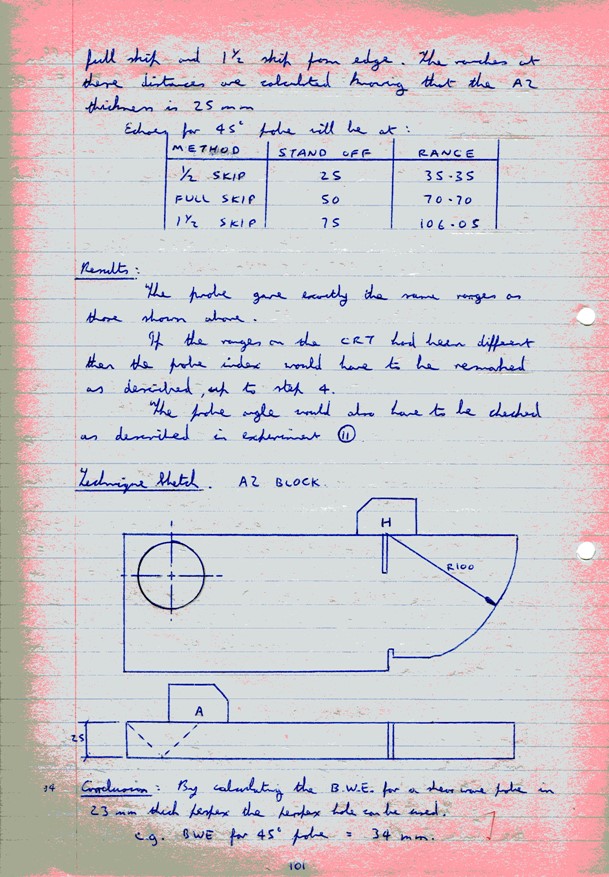 full skip and 1½ skip from edge. The ranches at
these distances are calculated knowing that the A2
thickness is 25 mm
Echoes for 45° probe will be at:
METHOD STAND OFF RANGE
½ SKIP 25 35.35
FULL SKIP 50 70.70
1½ SKIP 75 106.05
Results:
The probe gave exactly the same ranges as
those shown above.
If the ranges on the CRT had been different
then the probe index would have to be remarked
as described, up to step 4.
The probe angle would also have to be checked
as described in experiment 11
Technique Sketch. A2 BLOCK.
H
R100
A
25
34 Conclusion: By calculating the B.W.E. for a shear wave probe in
23 mm thick perspex the perspex hole can be used.
e.g. BWE for 45° probe = 34 mm.
101